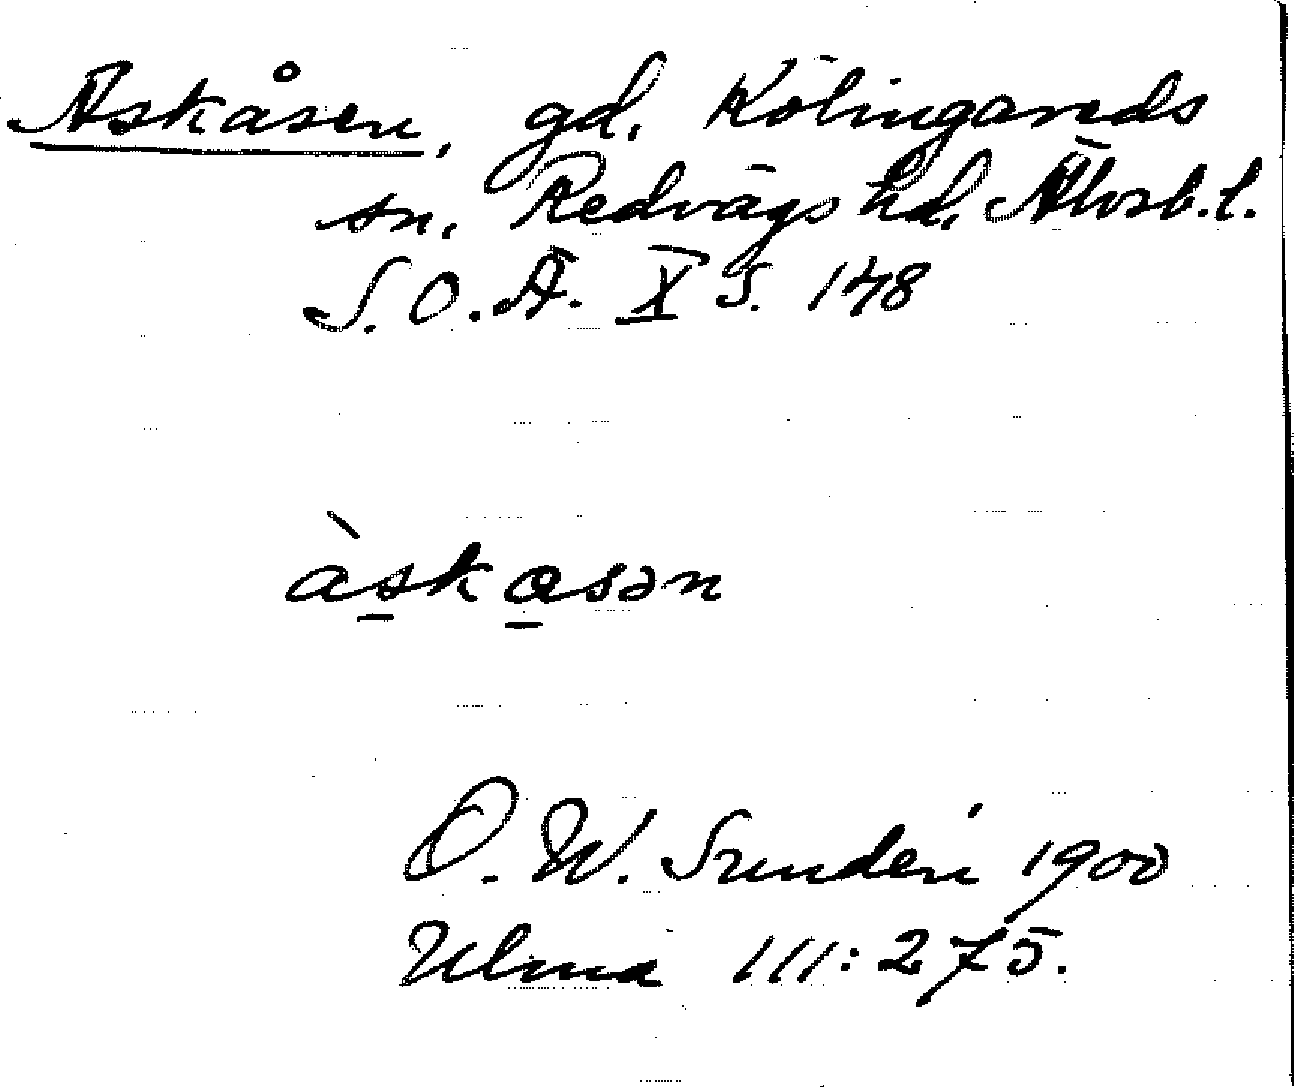 Askåsen, gd. Kölingareds
sn. Redvägs hd. Älvsb. l.
S.O.Ä. X s. 148
àskɑsən
O. W. Sundén 1900
Ulma 111:275.